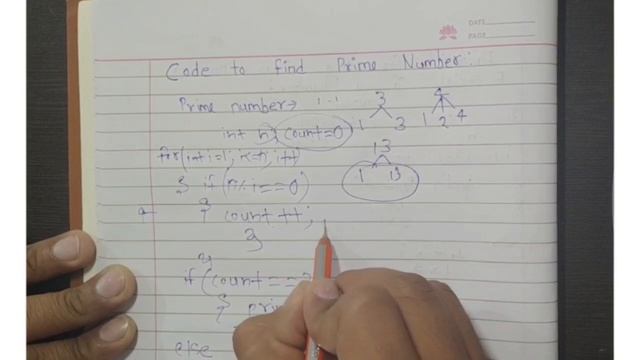 DATE
PAGE
Code to find Prime Number:
Prime number→ 3 4
int n, count=0 1 3 1 2 4
for(int i=1; i<=n; i++) 13
{ if(n%i==0) 1 13
{ count ++;
}
}
if (count ==
{
else